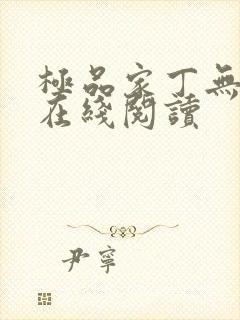 極品家丁無
在綫閱讀
尹寧